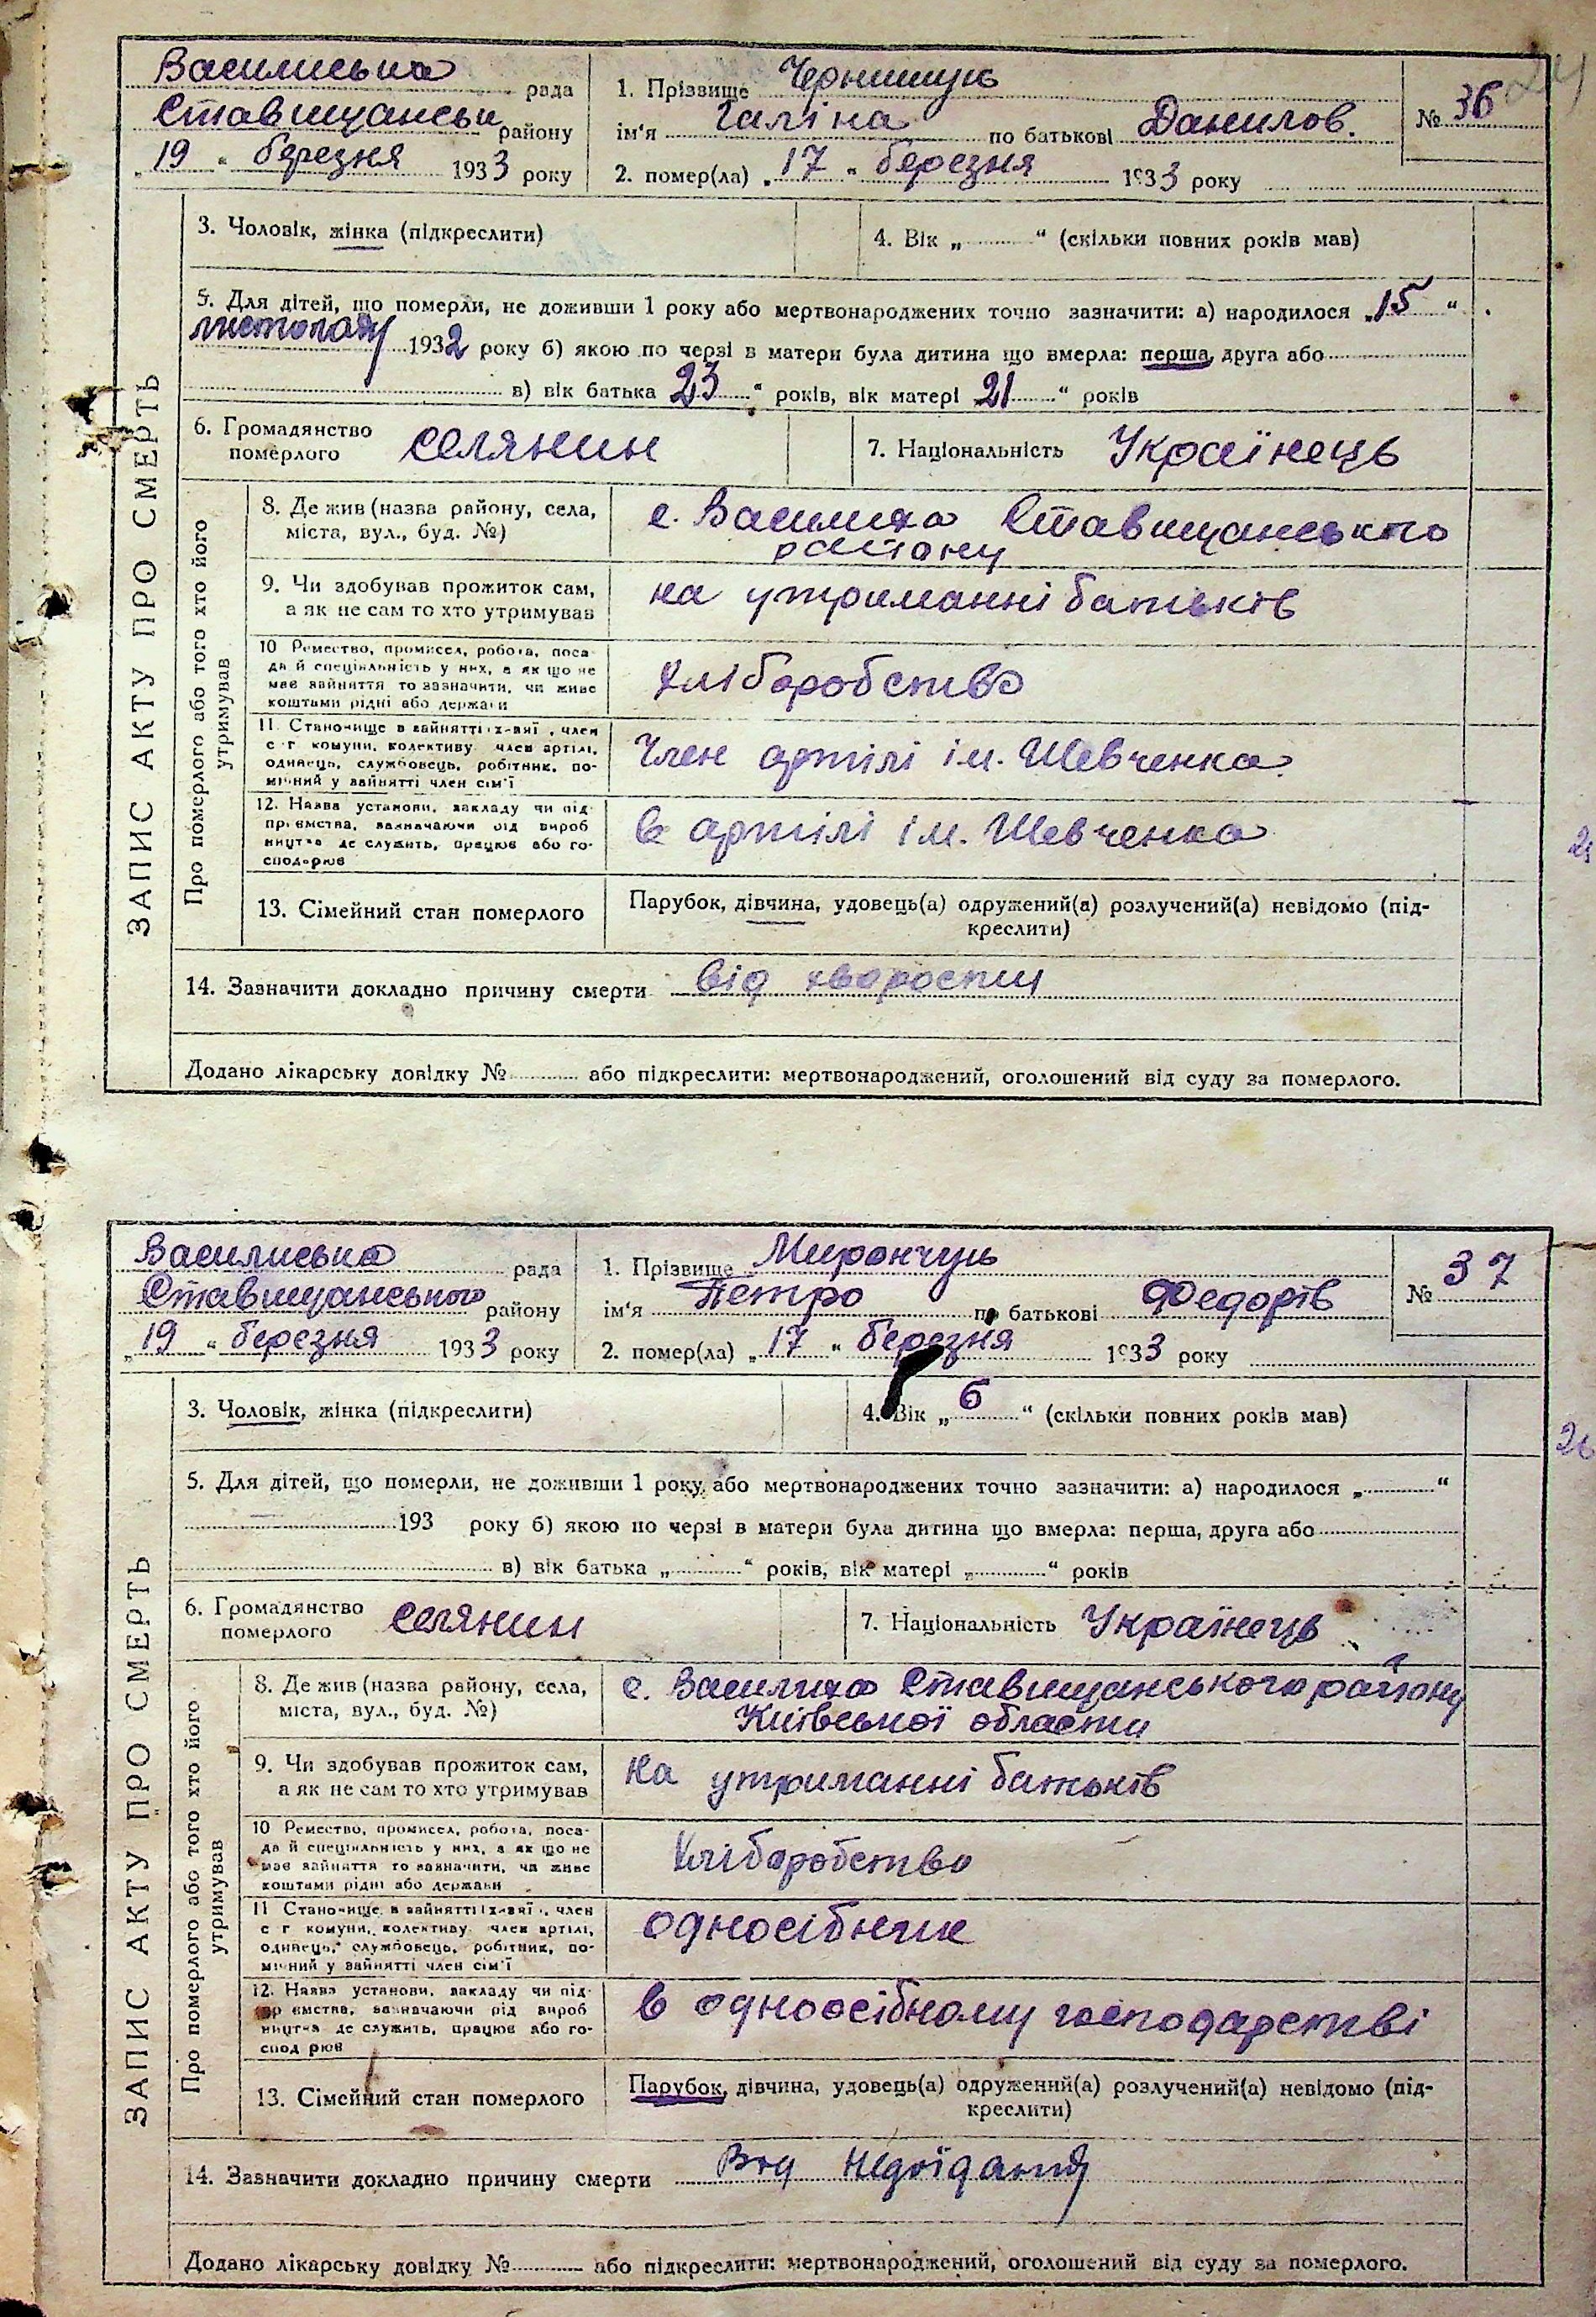 24
Василиська рада
Ставищанськ району
„19“ березня 1933 року
1. Прізвище Чернишук
ім'я Галіна по батькові Данилов.
2. помер(ла) „17“ березня 1933 року
№ 36
3. Чоловік, жінка (підкреслити)
4. Вік „ “ (скільки повних років мав)
5. Для дітей, що померли, не доживши 1 року або мертвонароджених точно зазначити: а) народилося „15“
листопаду 1932 року б) якою по черзі в матери була дитина що вмерла: перша, друга або
в) вік батька 23“ років, вік матері 21“ років
6. Громадянство померлого селянин
7. Національність Українець
ЗАПИС АКТУ ПРО СМЕРТЬ
Про померлого або того хто його утримував
8. Де жив (назва району, села,
міста, вул., буд. №)
с. Василиха Ставищанського
району
9. Чи здобував прожиток сам,
а як не сам то хто утримував
на утриманні батьків
10 Ремество, промисел, робота, поса-
да й спеціяльність у них, а як що не
має зайняття то зазначити, чи живе
коштами рідні або держави
хліборобство
11. Становище в зайнятті , член
с г комуни, колективу член артілі,
одинець, службовець, робітник, по-
мічний у зайнятті член сім'ї
Член артілі ім. Шевченка
12. Назва установи, закладу чи під-
приємства, зазначаючи рід вироб
ництва де служить, працює або го-
сподарює
в артілі ім. Шевченка
13. Сімейний стан померлого
Парубок, дівчина, удовець(а) одружений(а) розлучений(а) невідомо (під-
креслити)
14. Зазначити докладно причину смерти від хворости
Додано лікарську довідку № або підкреслити: мертвонароджений, оголошений від суду за померлого.
Василиська рада
Ставищанського району
„19“ березня 1933 року
1. Прізвище Мирончук
ім'я Петро по батькові Федорів
2. помер(ла) „17“ березня 1933 року
№ 37
3. Чоловік, жінка (підкреслити)
4. Вік „6“ (скільки повних років мав)
5. Для дітей, що померли, не доживши 1 року або мертвонароджених точно зазначити: а) народилося „ “
193 року б) якою по черзі в матери була дитина що вмерла: перша, друга або
в) вік батька „ “ років, вік матері „ “ років
6. Громадянство померлого селянин
7. Національність Українець
ЗАПИС АКТУ ПРО СМЕРТЬ
Про померлого або того хто його утримував
8. Де жив (назва району, села,
міста, вул., буд. №)
с. Василиха Ставищанського району
Київської области
9. Чи здобував прожиток сам,
а як не сам то хто утримував
на утриманні батьків
10 Ремество, промисел, робота, поса-
да й спеціяльність у них, а як що не
має зайняття то зазначити, чи живе
коштами рідні або держави
Хліборобство
11 Становище в зайнятті , член
с г комуни, колективу член артілі,
одинець, службовець, робітник, по-
мічний у зайнятті член сім'ї
односібник
12. Назва установи, закладу чи під-
приємства, зазначаючи рід вироб
ництва де служить, працює або го-
сподарює
в одноосібному господарстві
13. Сімейний стан померлого
Парубок, дівчина, удовець(а) одружений(а) розлучений(а) невідомо (під-
креслити)
14. Зазначити докладно причину смерти Вод недоїдання
Додано лікарську довідку № або підкреслити: мертвонароджений, оголошений від суду за померлого.